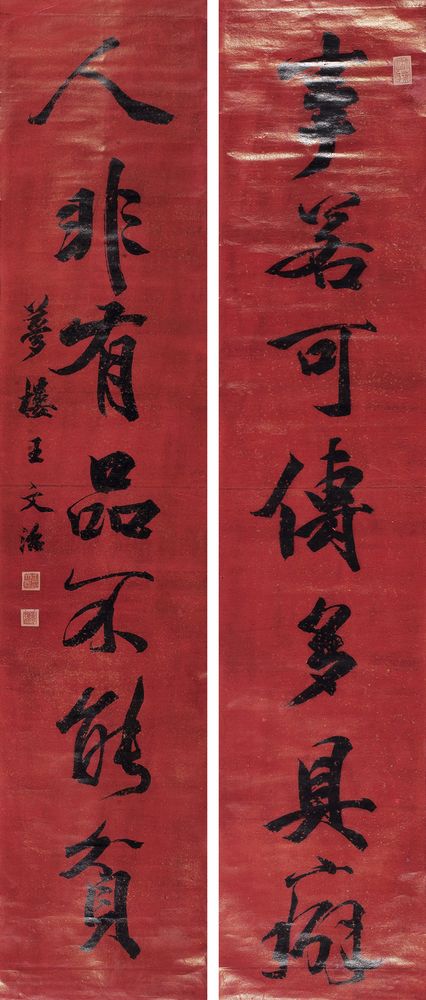 事若可傳多具癖
人非有品不能貧
夢樓王文治